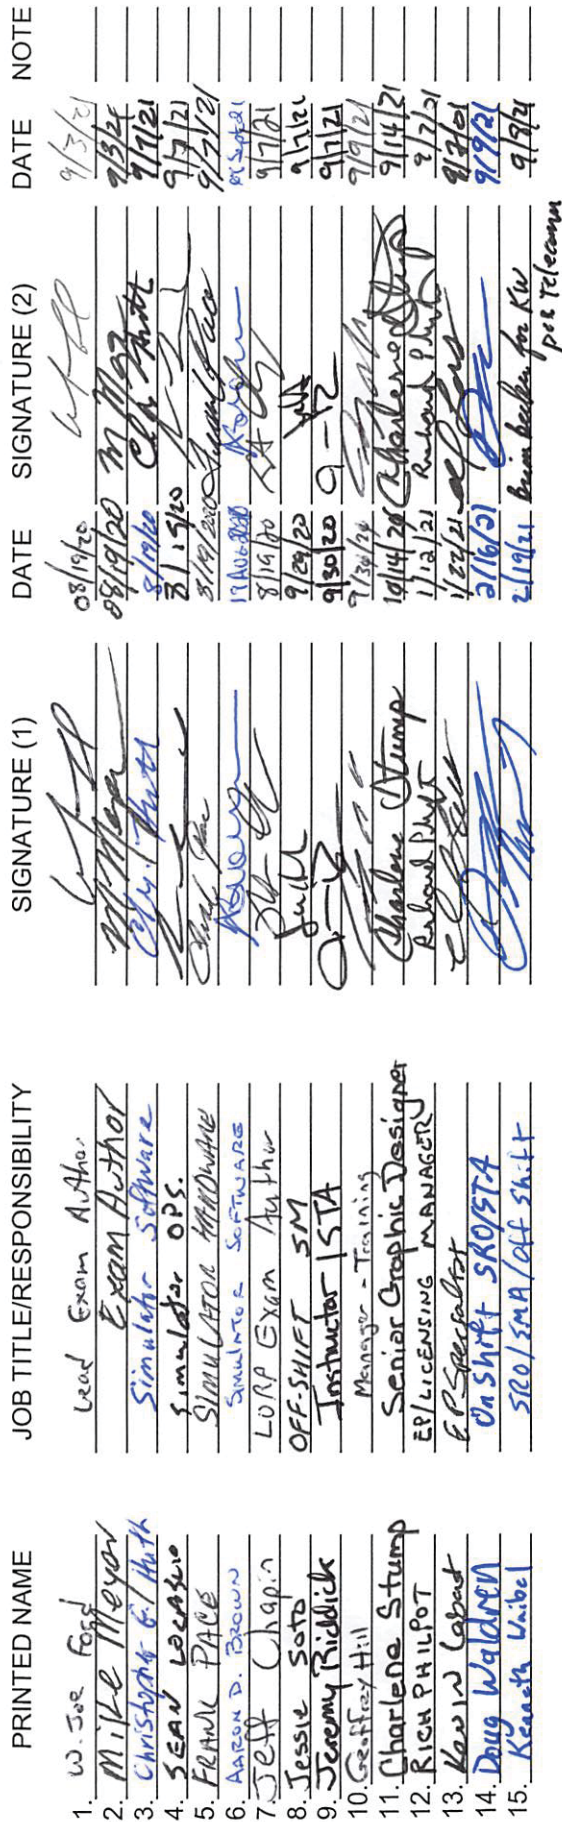 PRINTED NAME JOB TITLE/RESPONSIBILITY SIGNATURE (1) DATE SIGNATURE (2) DATE NOTE
1. W. Joe Lead Exam Author 08/19/20 9/3/21
2. Mike Meyer Exam Author M Meyer 08/19/20 M 9/3/21
3. Christopher G. Huth Simulator Software 8/19/20 9/7/21
4. SEAN Simulator OPS. 8/19/20 9/7/21
5. FRANK PACE SIMULATOR HARDWARE 8/19/2020 9/7/21
6. AARON D. BROWN SIMULATOR SOFTWARE 19AUG2020
7. Jeff Chapin LORP Exam Author 8/19/20 9/7/21
8. Jessie Soto OFF-SHIFT SM 9/29/20 9/7/21
9. Jeremy Riddick Instructor/STA 9/30/20 9/7/21
10. Geoffrey Hill Manager - Training 9/30/20 9/9/21
11. Charlene Stump Senior Graphic Designer Charlene Stump 10/14/20 Charlene Stump 9/14/21
12. RICH PHILPOT EP/LICENSING MANAGER Richard Philpot 1/12/21 Richard Philpot 9/7/21
13. Kevin EP Specialist 1/22/21
14. Doug Waldren Onshift SRO/STA 2/16/21 9/9/21
15. Kenneth SRO/SMA/Off Shift 2/19/21 for KW 9/8/21
per Telecomm